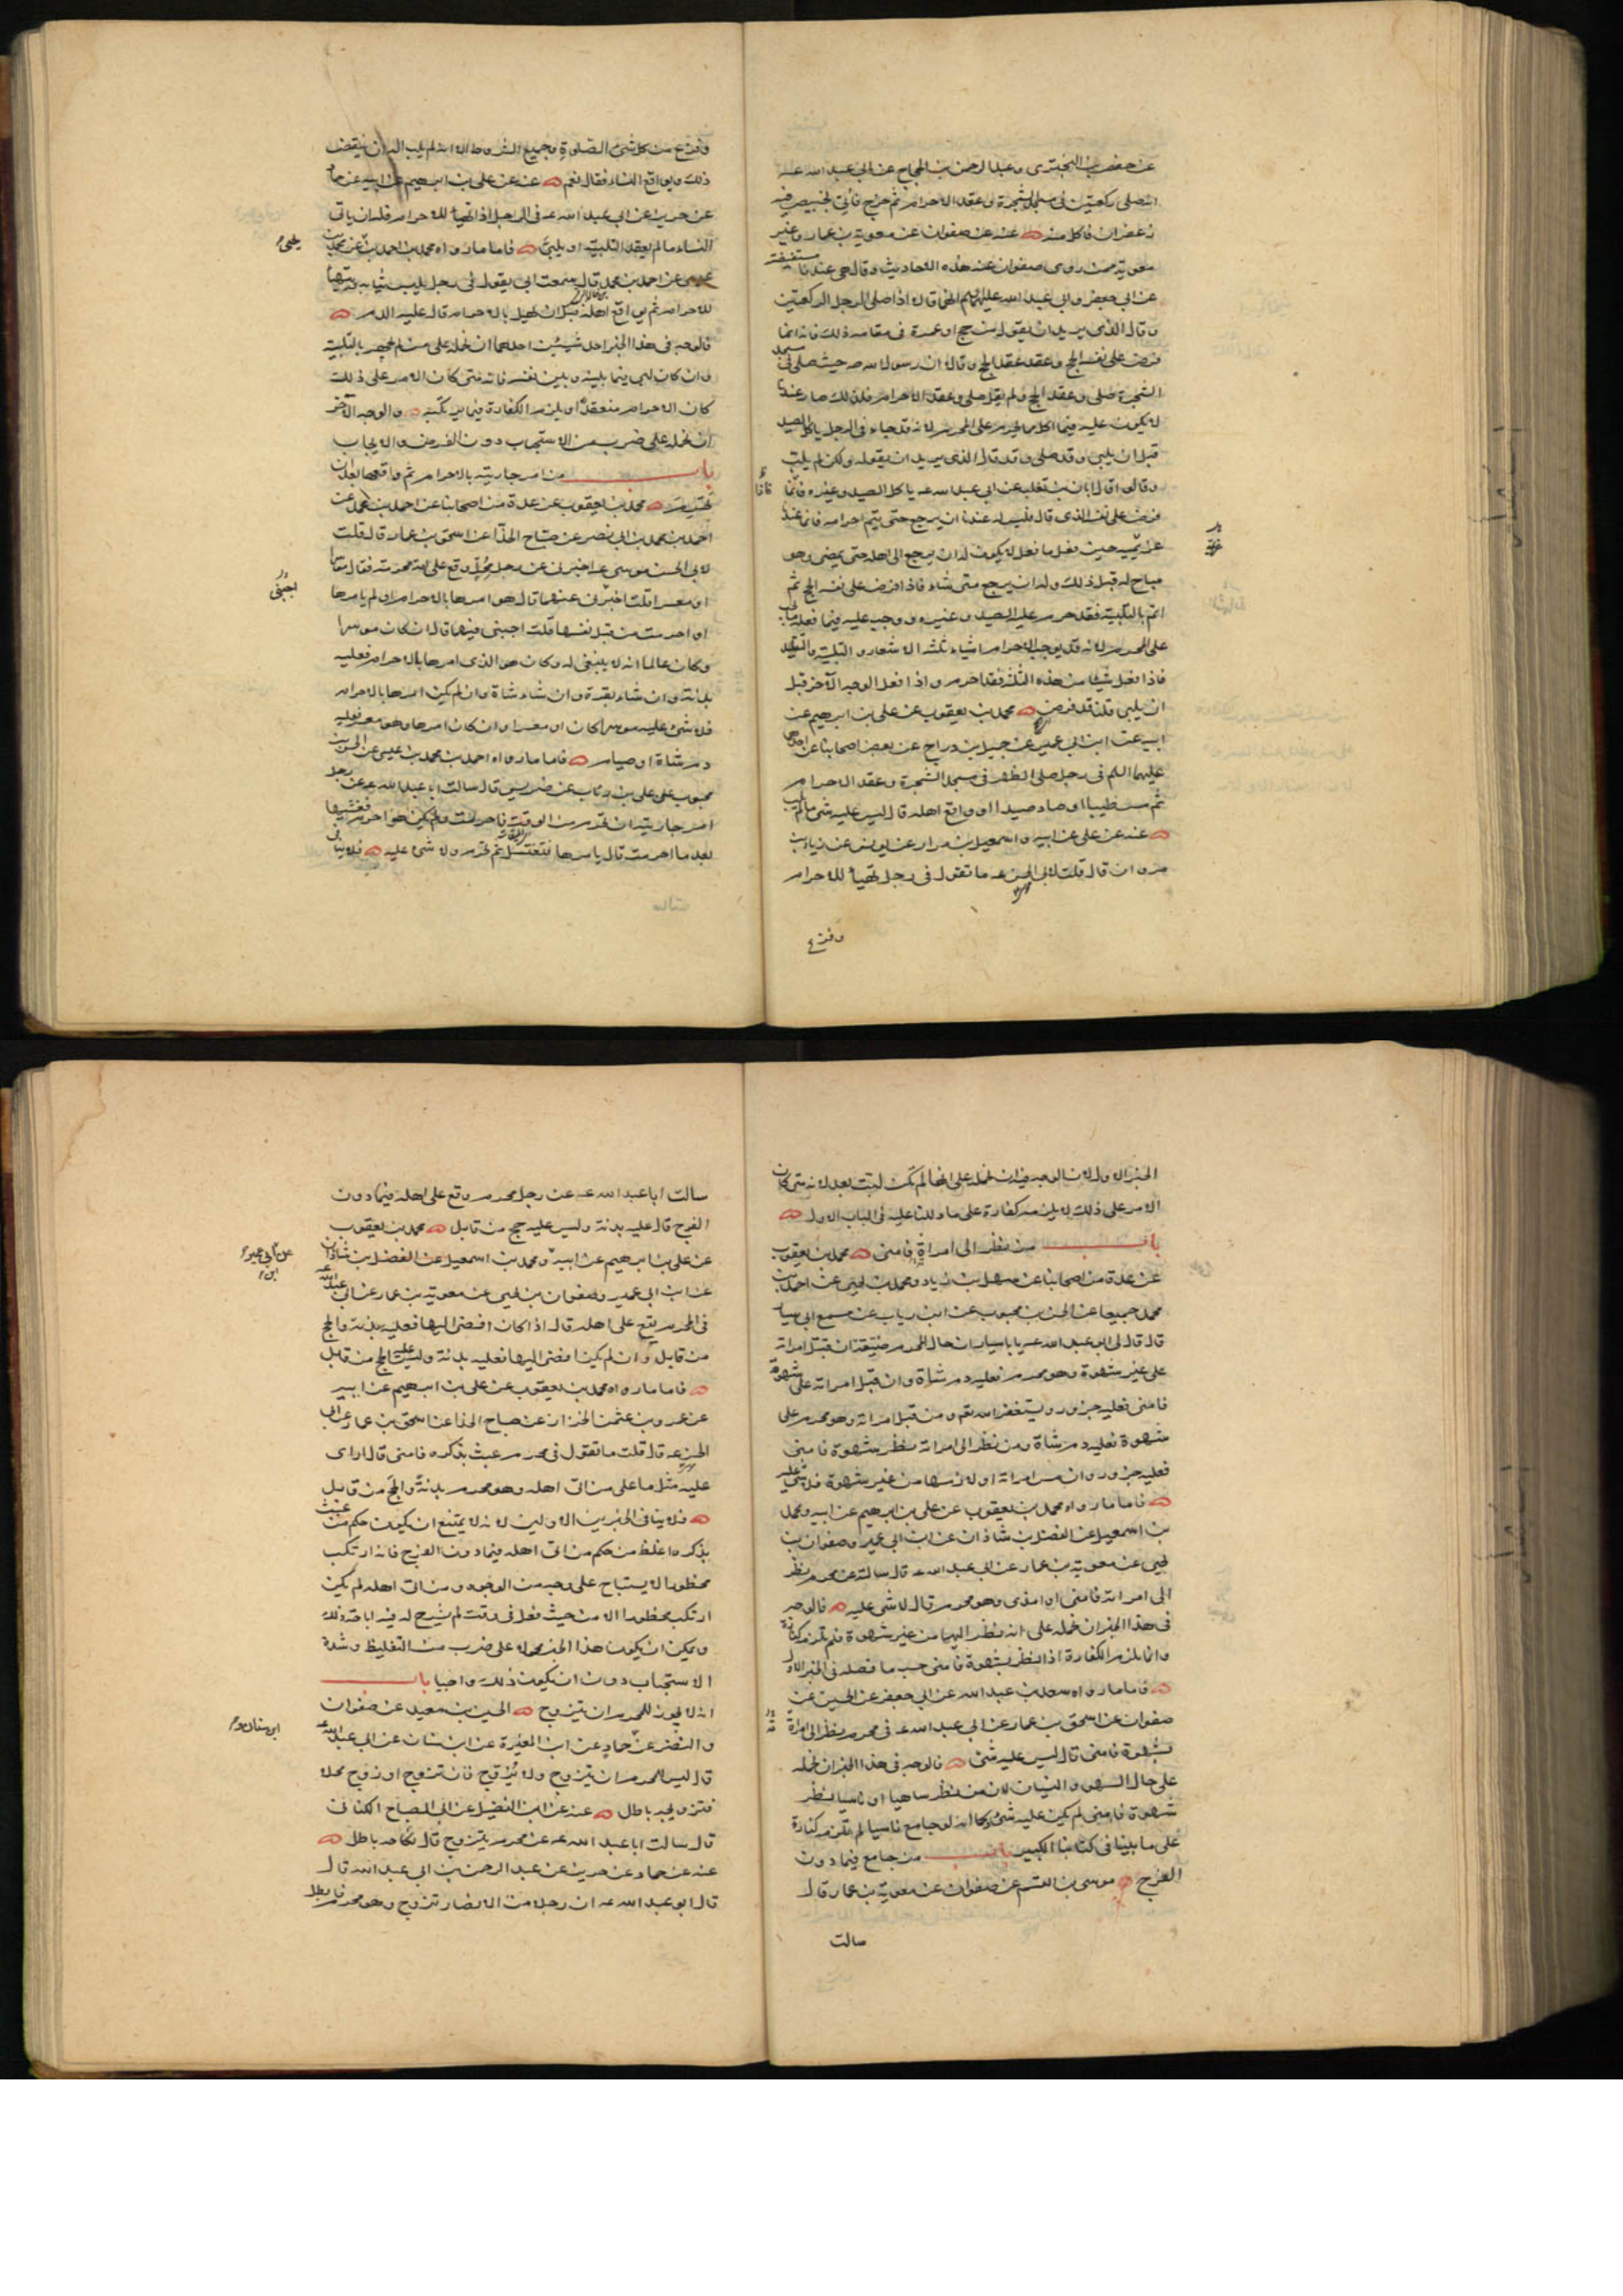 عن حفص بن البختري وعبد الرحمن بن الحجاج عن ابي عبد الله عـ
انه صلى ركعتين في مسجد الشجرة وعقد الاحرام ثم خرج فأتي بخبيص فيه
زعفران فاكل منه عنه عن صفوان عن معوية بن عمار وغير
معوية ممن روى صفوان عنه هذه الاحاديث وقال هي عندنا مستفيضة
عن ابي جعفر وابي عبد الله عليهما السلم انهما قالا اذا صلى الرجل الركعتين
وقال الذي يريد ان يقول من حج او عمرة في مقامه ذلك فانه انما
فرض على نفسه الحج وعقد عقد الحج وقالا ان رسول الله صـ حيث صلى في مسجد
الشجرة صلى وعقد الحج ولم يقل صلى وعقد الاحرام فلذلك صار عندنا
لا يكون عليه فيما اكل مما يحرم على المحرم لانه قد جاء في الرجل ياكل الصيد
قبل ان يلبي وقد صلى وقد قال الذي يريد ان يقوله ولكن لم يلب
وقالوا قال ابان بن تغلب عن ابي عبد الله عـ ياكل الصيد وغيره فانما
فرض على نفسه الذي قال فليس له عندنا ان يرجع حتى يتم احرامه فانما عندنا
عزيمته حين فعل ما فعل لا يكون له ان يرجع الى اهله حتى يمضي وهو
مباح له قبل ذلك وله ان يرجع متى شاء فاذا فرض على نفسه الحج ثم
اتم بالتلبية فقد حرم عليه الصيد وغيره ووجب عليه فيما فعله ما يجب
على المحرم لانه قد يوجب الاحرام اشياء ثلثة الاشعار والتلبية والتقليد
فاذا فعل شيئا من هذه الثلثة فقد احرم واذا فعل الوجه الآخر قبل
ان يلبي فلنا قد فرض محمد بن يعقوب عن علي بن ابرهيم عن
ابيه عن ابن ابي عمير عن جميل بن دراج عن بعض اصحابنا عن احدهما
عليهما السلم في رجل صلى الظهر في مسجد الشجرة وعقد الاحرام
ثم مس طيبا او صاد صيدا او واقع اهله قال ليس عليه شيء ما لم يلب
عنه عن علي عن ابيه واسمعيل بن مرار عن يونس عن زياد بن
مروان قال قلت لابي الحسن عـ ما تقول في رجل تهيأ للاحرام
وفرغ
وفرغ من كل شيء الصلوة وجميع الشروط الا انه لم يلب اله ان ينقض
ذلك ويواقع النساء فقال نعم عنه عن علي بن ابرهيم عن ابيه عن حماد
عن حريز عن ابي عبد الله عـ في الرجل اذا تهيأ للاحرام فله ان ياتي
النساء ما لم يعقد التلبية او يلبي فاما ما رواه محمد بن احمد بن يحيى عن محمد بن
عيسى عن احمد بن محمد قال سمعت ابي يقول في رجل يلبس ثيابه ويتهيأ
للاحرام ثم يواقع اهله قبل ان يهل بالاحرام قال عليه الدم
فالوجه في هذا الخبر احد شيئين احدهما ان نحمله على من لم يجهر بالتلبية
وان كان لبى فيما بينه وبين نفسه فانه متى كان الامر على ذلك
كان الاحرام منعقدا ويلزمه الكفارة فيما يرتكبه والوجه الآخر
ان نحمله على ضرب من الاستحباب دون الفرض والايجاب
باب من امر جاريته بالاحرام ثم واقعها بعد ان
تحرم محمد بن يعقوب عن عدة من اصحابنا عن احمد بن محمد عن
احمد بن محمد بن ابي نصر عن صباح الحذا عن اسحق بن عمار قال قلت
لابي الحسن موسى عـ اخبرني عن رجل محل وقع على امة محرمة فقال موسرا
او معسرا قلت اخبرني عنهما قال هو امرها بالاحرام او لم يامرها
او احرمت من قبل نفسها قلت اجبني فيهما قال ان كان موسرا
وكان عالما انه لا ينبغي له وكان هو الذي امرها بالاحرام فعليه
بدنة وان شاء بقرة وان شاء شاة وان لم يكن امرها بالاحرام
فلا شيء عليه موسرا كان او معسرا وان كان امرها وهو معسر فعليه
دم شاة او صيام فاما ما رواه احمد بن محمد بن عيسى عن الحسن بن
محبوب عن علي بن رئاب عن ضريس قال سالت ابا عبد الله عـ عن رجل
امر جاريته ان تحرم من الوقت فاحرمت ولم يكن هو احرم فغشيها
بعد ما احرمت قال يامرها فتغتسل ثم تحرم ولا شيء عليه فلا ينافي
الخبر الاول لان الوجه فيه ان نحمله على انها لم تكن لبت بعد لانه متى كان
الامر على ذلك لا يلزمه كفارة على ما دللنا عليه في الباب الاول
باب من نظر الى امرأة فامنى محمد بن يعقوب
عن عدة من اصحابنا عن سهل بن زياد ومحمد بن يحيى عن احمد بن
محمد جميعا عن الحسن بن محبوب عن ابن رياب عن مسمع ابي سيار
قال قال لي ابو عبد الله عـ يا با سيار ان حال المحرم ضيقة ان قبل امراته
على غير شهوة وهو محرم فعليه دم شاة وان قبل امراته على شهوة
فامنى فعليه جزور ويستغفر الله نعم ومن قبل امراته وهو محرم على
شهوة فعليه دم شاة ومن نظر الى امراته نظر بشهوة فامنى
فعليه جزور وان مس امراته او لازمها من غير شهوة فلا شيء عليه
فاما ما رواه محمد بن يعقوب عن علي بن ابرهيم عن ابيه ومحمد
بن اسمعيل عن الفضل بن شاذان عن ابن ابي عمير وصفوان بن
يحيى عن معوية بن عمار عن ابي عبد الله عـ قال سالته عن محرم نظر
الى امراته فامنى او امذى وهو محرم قال لا شيء عليه فالوجه
في هذا الخبر ان نحمله على انه نظر اليها من غير شهوة فلم تلزمه كفارة
وانما يلزمه الكفارة اذا نظر بشهوة فامنى حسب ما فصله في الخبر الاول
فاما ما رواه سعد بن عبد الله عن ابي جعفر عن الحسين عن
صفوان عن اسحق بن عمار عن ابي عبد الله عـ في محرم نظر الى امرأة
بشهوة فامنى قال ليس عليه شيء فالوجه في هذا الخبر ان نحمله
على حال السهو والنسيان لان من نظر ساهيا او ناسيا نظر
شهوة فامنى لم يكن عليه شيء كما انه لو جامع ناسيا لم تلزمه كفارة
على ما بينا في كتابنا الكبير باب من جامع فيما دون
الفرج موسى بن القسم عن صفوان عن معوية بن عمار قال
سالت
سالت ابا عبد الله عـ عن رجل محرم وقع على اهله فيما دون
الفرج قال عليه بدنة وليس عليه حج من قابل محمد بن يعقوب
عن علي بن ابرهيم عن ابيه ومحمد بن اسمعيل عن الفضل بن شاذان
عن ابن ابي عمير وصفوان بن يحيى عن معوية بن عمار عن ابي عبد الله عـ
في المحرم يقع على اهله قال اذا كان افضى اليها فعليه بدنة والحج
من قابل وان لم يكن افضى اليها فعليه بدنة وليس عليه الحج من قابل
فاما ما رواه محمد بن يعقوب عن علي بن ابرهيم عن ابيه
عن عمرو بن عثمن الخزاز عن صباح الحذا عن اسحق بن عمار عن ابي
الحسن عـ قال قلت ما تقول في محرم عبث بذكره فامنى قال ارى
عليه مثل ما على من اتى اهله وهو محرم بدنة والحج من قابل
فلا ينافي الخبرين الاولين لانه لا يمتنع ان يكون حكم من عبث
بذكره اغلظ من حكم من اتى اهله فيما دون الفرج فانه ارتكب
محظورا لا يستباح على وجه من الوجوه ومن اتى اهله لم يكن
ارتكب محظورا الا من حيث فعل في وقت لم يشرح له فيه اباحة ذلك
ويمكن ان يكون هذا الخبر محمولا على ضرب من التغليظ وشدة
الاستحباب دون ان يكون ذلك واجبا باب
انه لا يجوز للمحرم ان يتزوج الحسين بن سعيد عن صفوان
والنضر عن حماد عن ابن المغيرة عن ابن سنان عن ابي عبد الله عـ
قال ليس للمحرم ان يتزوج ولا يزوج فان تزوج او زوج محلا
فتزويجه باطل عنه عن ابن الفضيل عن ابي الصباح الكناني
قال سالت ابا عبد الله عـ عن محرم يتزوج قال نكاحه باطل
عنه عن حماد عن حريز عن عبد الرحمن بن ابي عبد الله قال
قال ابو عبد الله عـ ان رجلا من الانصار تزوج وهو محرم فابطل